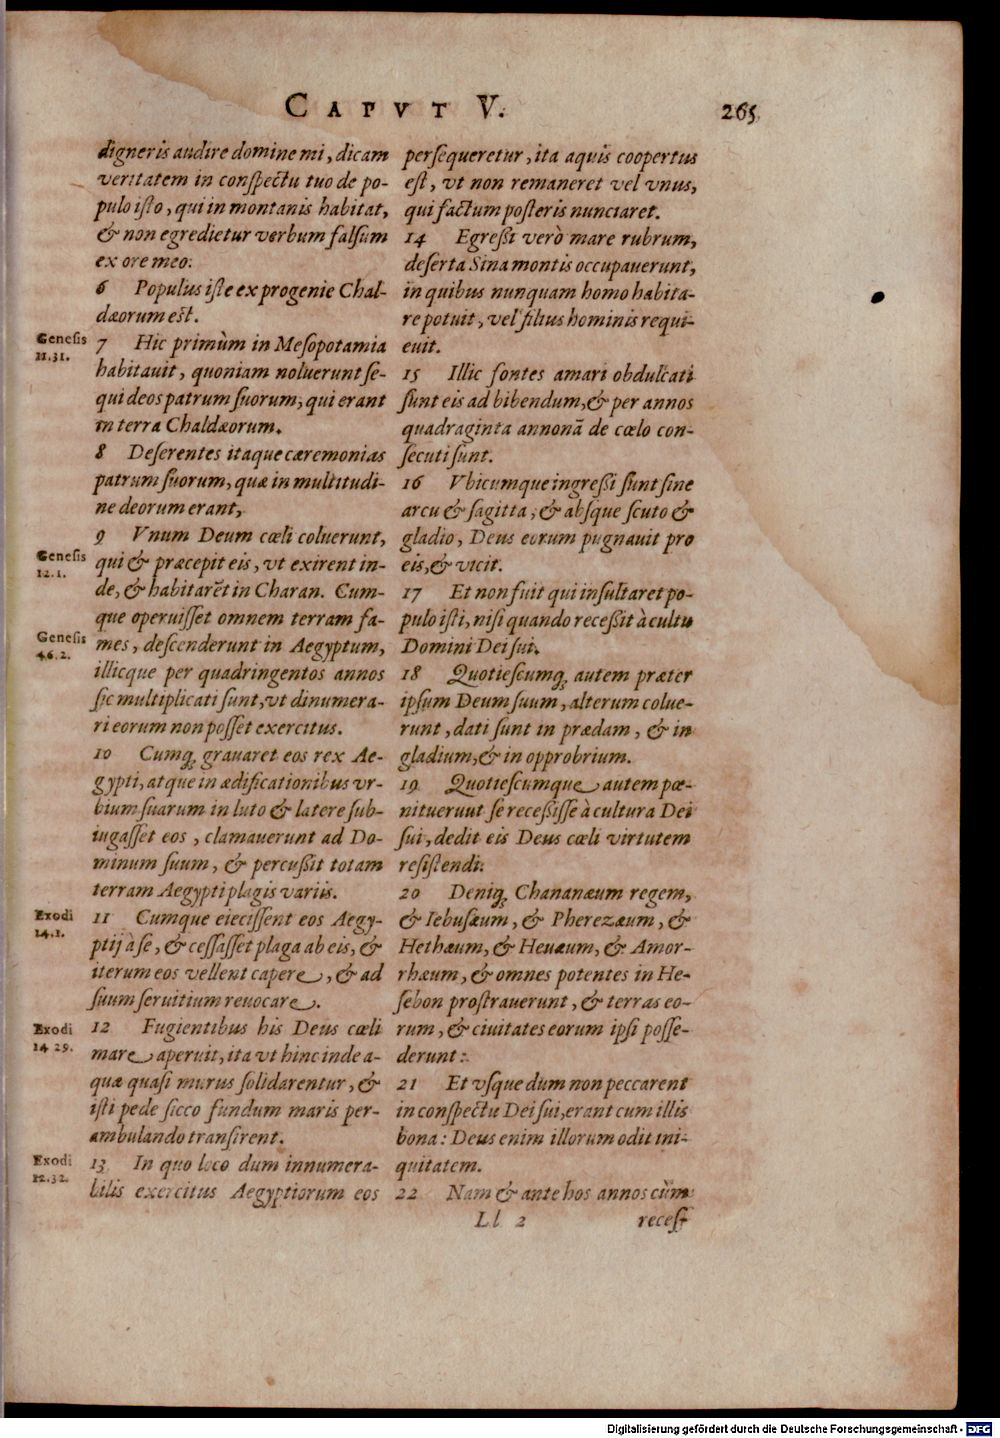 CAPVT V.
265
digneris audire domine mi, dicam
veritatem in conspectu tuo de po-
pulo isto, qui in montanis habitat,
& non egredietur verbum falsum
ex ore meo.
6 Populus iste ex progenie Chal-
dæorum est.
Genesis
11.31.
7 Hic primùm in Mesopotamia
habitauit, quoniam noluerunt se-
qui deos patrum suorum, qui erant
in terra Chaldæorum.
8 Deserentes itaque cæremonias
patrum suorum, quæ in multitudi-
ne deorum erant,
9 Vnum Deum cœli coluerunt,
Genesis
12.1.
qui & præcepit eis, vt exirent in-
de, & habitarẽt in Charan. Cum-
que operuisset omnem terram fa-
Genesis
46.2.
mes, descenderunt in Aegyptum,
illicque per quadringentos annos
sic multiplicati sunt, vt dinumera-
ri eorum non posset exercitus.
10 Cumq; grauaret eos rex Ae-
gypti, atque in ædificationibus vr-
bium suarum in luto & latere sub-
iugasset eos, clamauerunt ad Do-
minum suum, & percußit totam
terram Aegypti plagis variis.
Exodi
14.1.
11 Cumque eiecissent eos Aegy-
ptij à se, & cessasset plaga ab eis, &
iterum eos vellent capere, & ad
suum seruitium reuocare.
Exodi
14 29.
12 Fugientibus his Deus cœli
mare aperuit, ita vt hinc inde a-
quæ quasi murus solidarentur, &
isti pede sicco fundum maris per-
ambulando transirent.
Exodi
12.32.
13 In quo loco dum innumera-
bilis exercitus Aegyptiorum eos
persequeretur, ita aquis coopertus
est, vt non remaneret vel vnus,
qui factum posteris nunciaret.
14 Egreßi verò mare rubrum,
deserta Sina montis occupauerunt,
in quibus nunquam homo habita-
re potuit, vel filius hominis requi-
euit.
15 Illic fontes amari obdulcati
sunt eis ad bibendum, & per annos
quadraginta annonã de cœlo con-
secuti sunt.
16 Vbicumque ingreßi sunt sine
arcu & sagitta, & absque scuto &
gladio, Deus eorum pugnauit pro
eis, & vicit.
17 Et non fuit qui insultaret po-
pulo isti, nisi quando receßit à cultu
Domini Dei sui.
18 Quotiescumq; autem præter
ipsum Deum suum, alterum colue-
runt, dati sunt in prædam, & in
gladium, & in opprobrium.
19 Quotiescumque autem pœ-
nituerunt se receßisse à cultura Dei
sui, dedit eis Deus cœli virtutem
resistendi.
20 Deniq; Chananæum regem,
& Iebusæum, & Pherezæum, &
Hethæum, & Heuæum, & Amor-
rhæum, & omnes potentes in He-
sebon prostrauerunt, & terras eo-
rum, & ciuitates eorum ipsi posse-
derunt:
21 Et vsque dum non peccarent
in conspectu Dei sui, erant cum illis
bona: Deus enim illorum odit ini-
quitatem.
22 Nam & ante hos annos cùm
Ll 2
recess
Digitalisierung gefördert durch die Deutsche Forschungsgemeinschaft - DFG